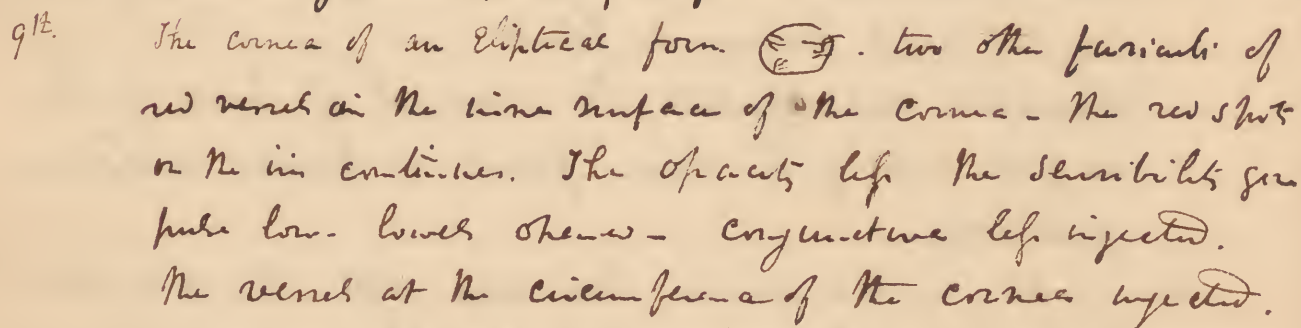 9th. The cornea of an Eliptical form. two other funiculi of
red vessels in the inner surface of the cornea - The red spots
on the iris continues. The opacity less the sensibility
pulse low - bowels opened - conjunctiva less injected.
The vessels at the circumference of the cornea injected.